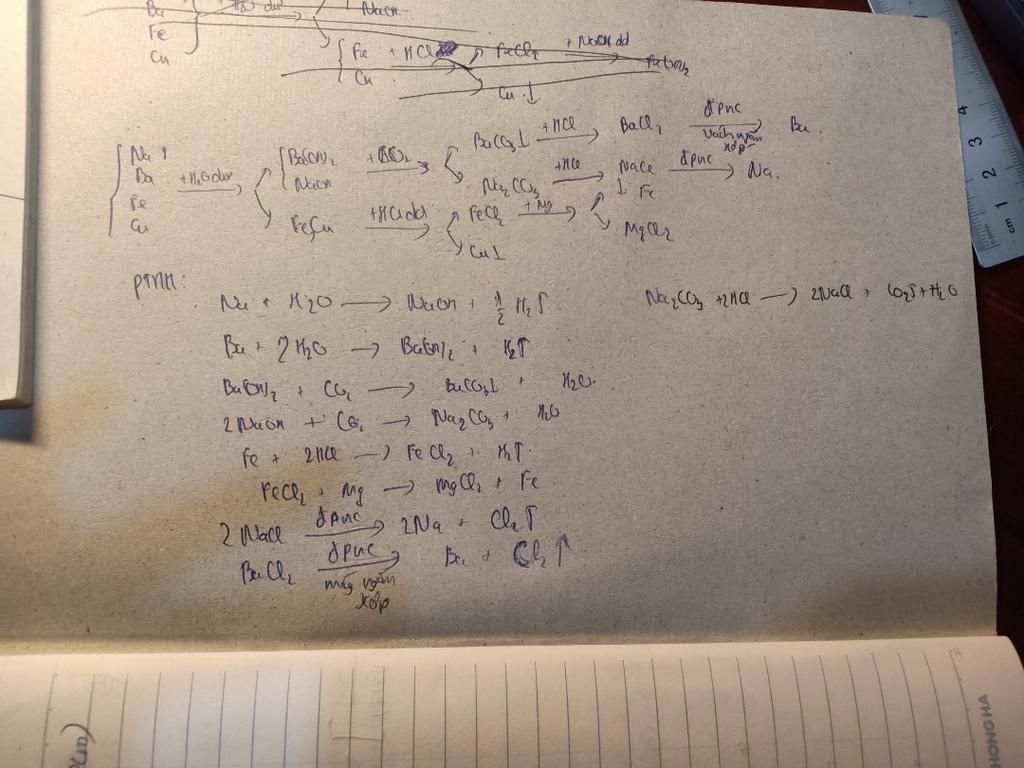 Ba + H₂O dư NaOH
Fe
Cu
{ Fe + HCl FeCl₂ + NaOH dd Fe(OH)₂
Cu Cu ↓
{ Na Ba Fe Cu + H₂O dư → { Ba(OH)₂ NaOH + CO₂ → BaCO₃↓ + HCl → BaCl₂ đpnc → Ba.
Na₂CO₃ + HCl → NaCl đpnc → Na.
Fe, Cu + HCl dd → FeCl₂ + Mg → ↓ Fe
MgCl₂
Cu↓
PTHH:
Na + H₂O → NaOH + ½ H₂↑
Na₂CO₃ + 2HCl → 2NaCl + CO₂↑ + H₂O
Ba + 2H₂O → Ba(OH)₂ + H₂↑
Ba(OH)₂ + CO₂ → BaCO₃↓ + H₂O.
2NaOH + CO₂ → Na₂CO₃ + H₂O
Fe + 2HCl → FeCl₂ + H₂↑.
FeCl₂ + Mg → MgCl₂ + Fe
2NaCl đpnc → 2Na + Cl₂↑
BaCl₂ đpnc → Ba + Cl₂↑
xốp
cm 1 2 3 4
HONG HA